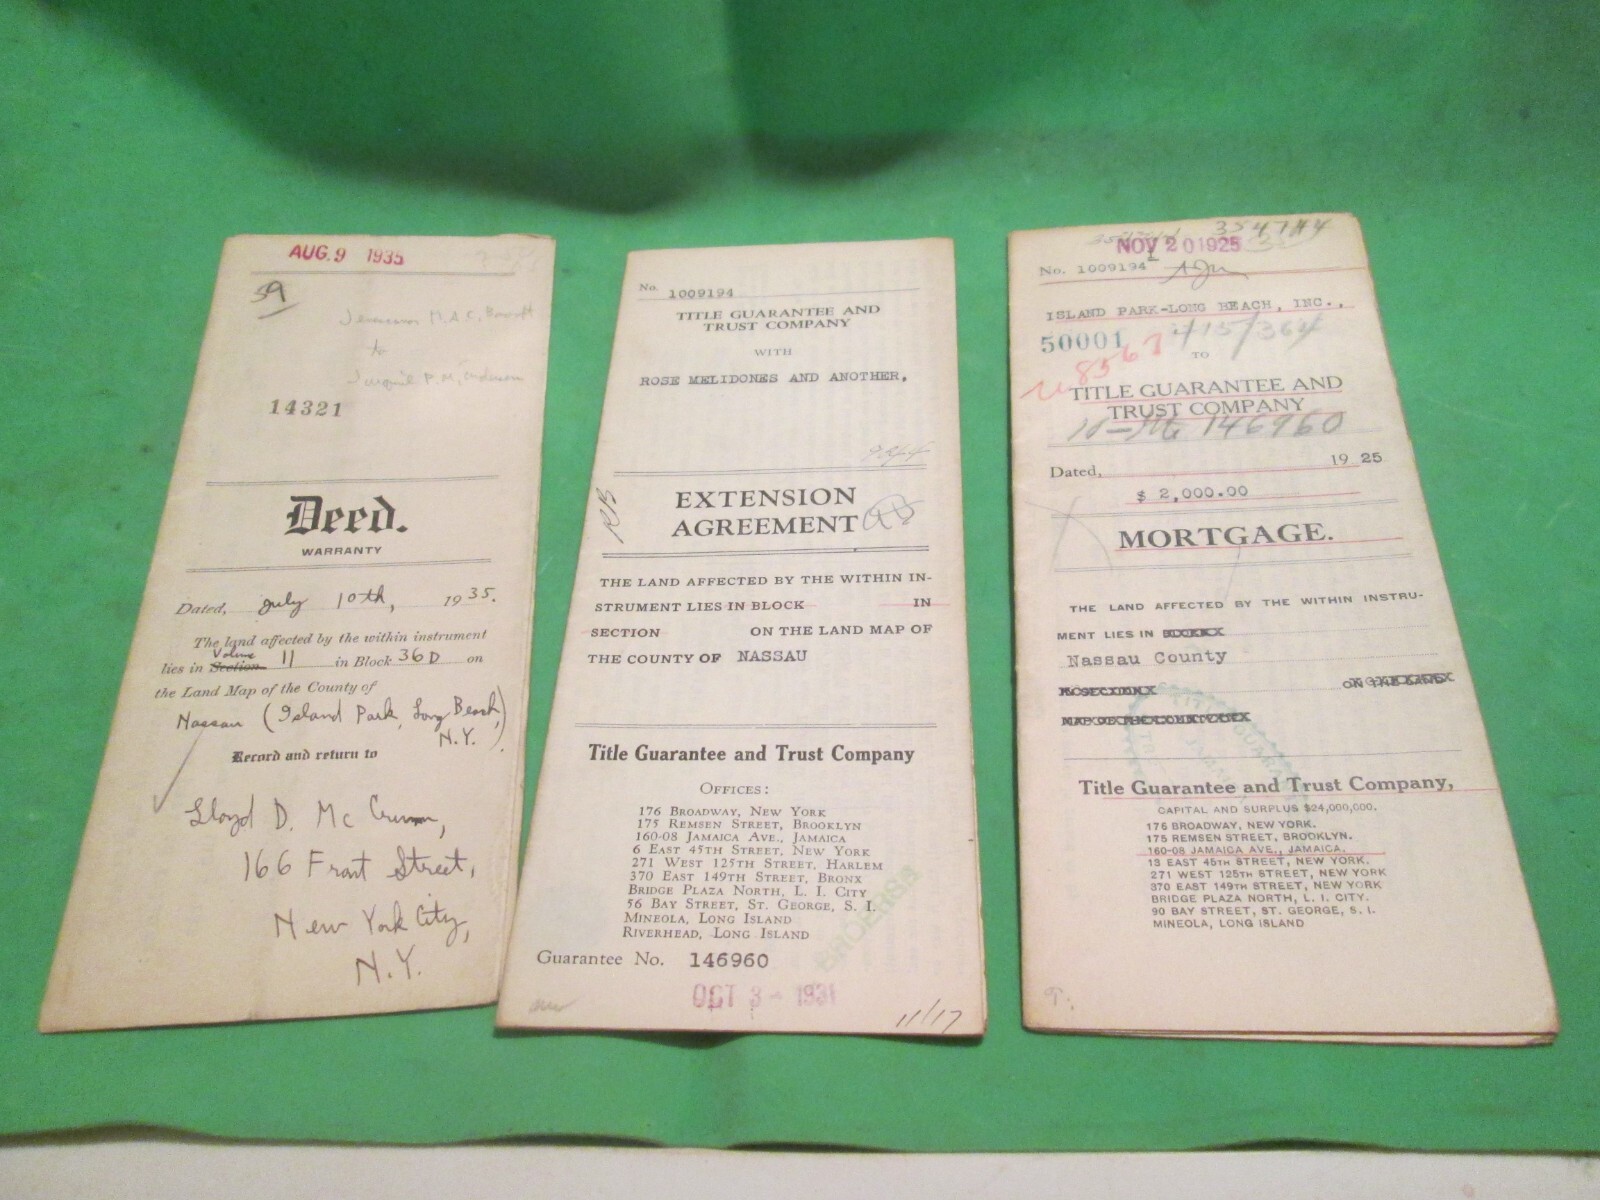 AUG. 9 1935
59
to
14321
Deed.
WARRANTY
Dated, July 10th, 1935.
The land affected by the within instrument
Volume
lies in Section 11 in Block 36D on
the Land Map of the County of
Nassau (Island Park, Long Beach,
N.Y.)
Record and return to
Lloyd D. Mc Crum,
166 Front Street,
New York City,
N.Y.
No. 1009194
TITLE GUARANTEE AND
TRUST COMPANY
WITH
ROSE MELIDONES AND ANOTHER,
RB
EXTENSION
AGREEMENT
THE LAND AFFECTED BY THE WITHIN IN-
STRUMENT LIES IN BLOCK IN
SECTION ON THE LAND MAP OF
THE COUNTY OF NASSAU
Title Guarantee and Trust Company
OFFICES:
176 BROADWAY, NEW YORK
175 REMSEN STREET, BROOKLYN
160-08 JAMAICA AVE., JAMAICA
6 EAST 45TH STREET, NEW YORK
271 WEST 125TH STREET, HARLEM
370 EAST 149TH STREET, BRONX
BRIDGE PLAZA NORTH, L. I. CITY
56 BAY STREET, ST. GEORGE, S. I.
MINEOLA, LONG ISLAND
RIVERHEAD, LONG ISLAND
Guarantee No. 146960
OCT 3 - 1931
11/17
354784
NOV 20 1925
No. 1009194
ISLAND PARK-LONG BEACH, INC.,
50001 415/364
8567
TO
TITLE GUARANTEE AND
TRUST COMPANY
146960
Dated, 1925
$ 2,000.00
MORTGAGE.
THE LAND AFFECTED BY THE WITHIN INSTRU-
MENT LIES IN BLOCK
Nassau County
IN SECTION ON THE LAND
MAP OF THE COUNTY OF
Title Guarantee and Trust Company,
CAPITAL AND SURPLUS $24,000,000.
176 BROADWAY, NEW YORK.
175 REMSEN STREET, BROOKLYN.
160-08 JAMAICA AVE., JAMAICA.
13 EAST 45TH STREET, NEW YORK.
271 WEST 125TH STREET, NEW YORK
370 EAST 149TH STREET, NEW YORK
BRIDGE PLAZA NORTH, L. I. CITY.
90 BAY STREET, ST. GEORGE, S. I.
MINEOLA, LONG ISLAND